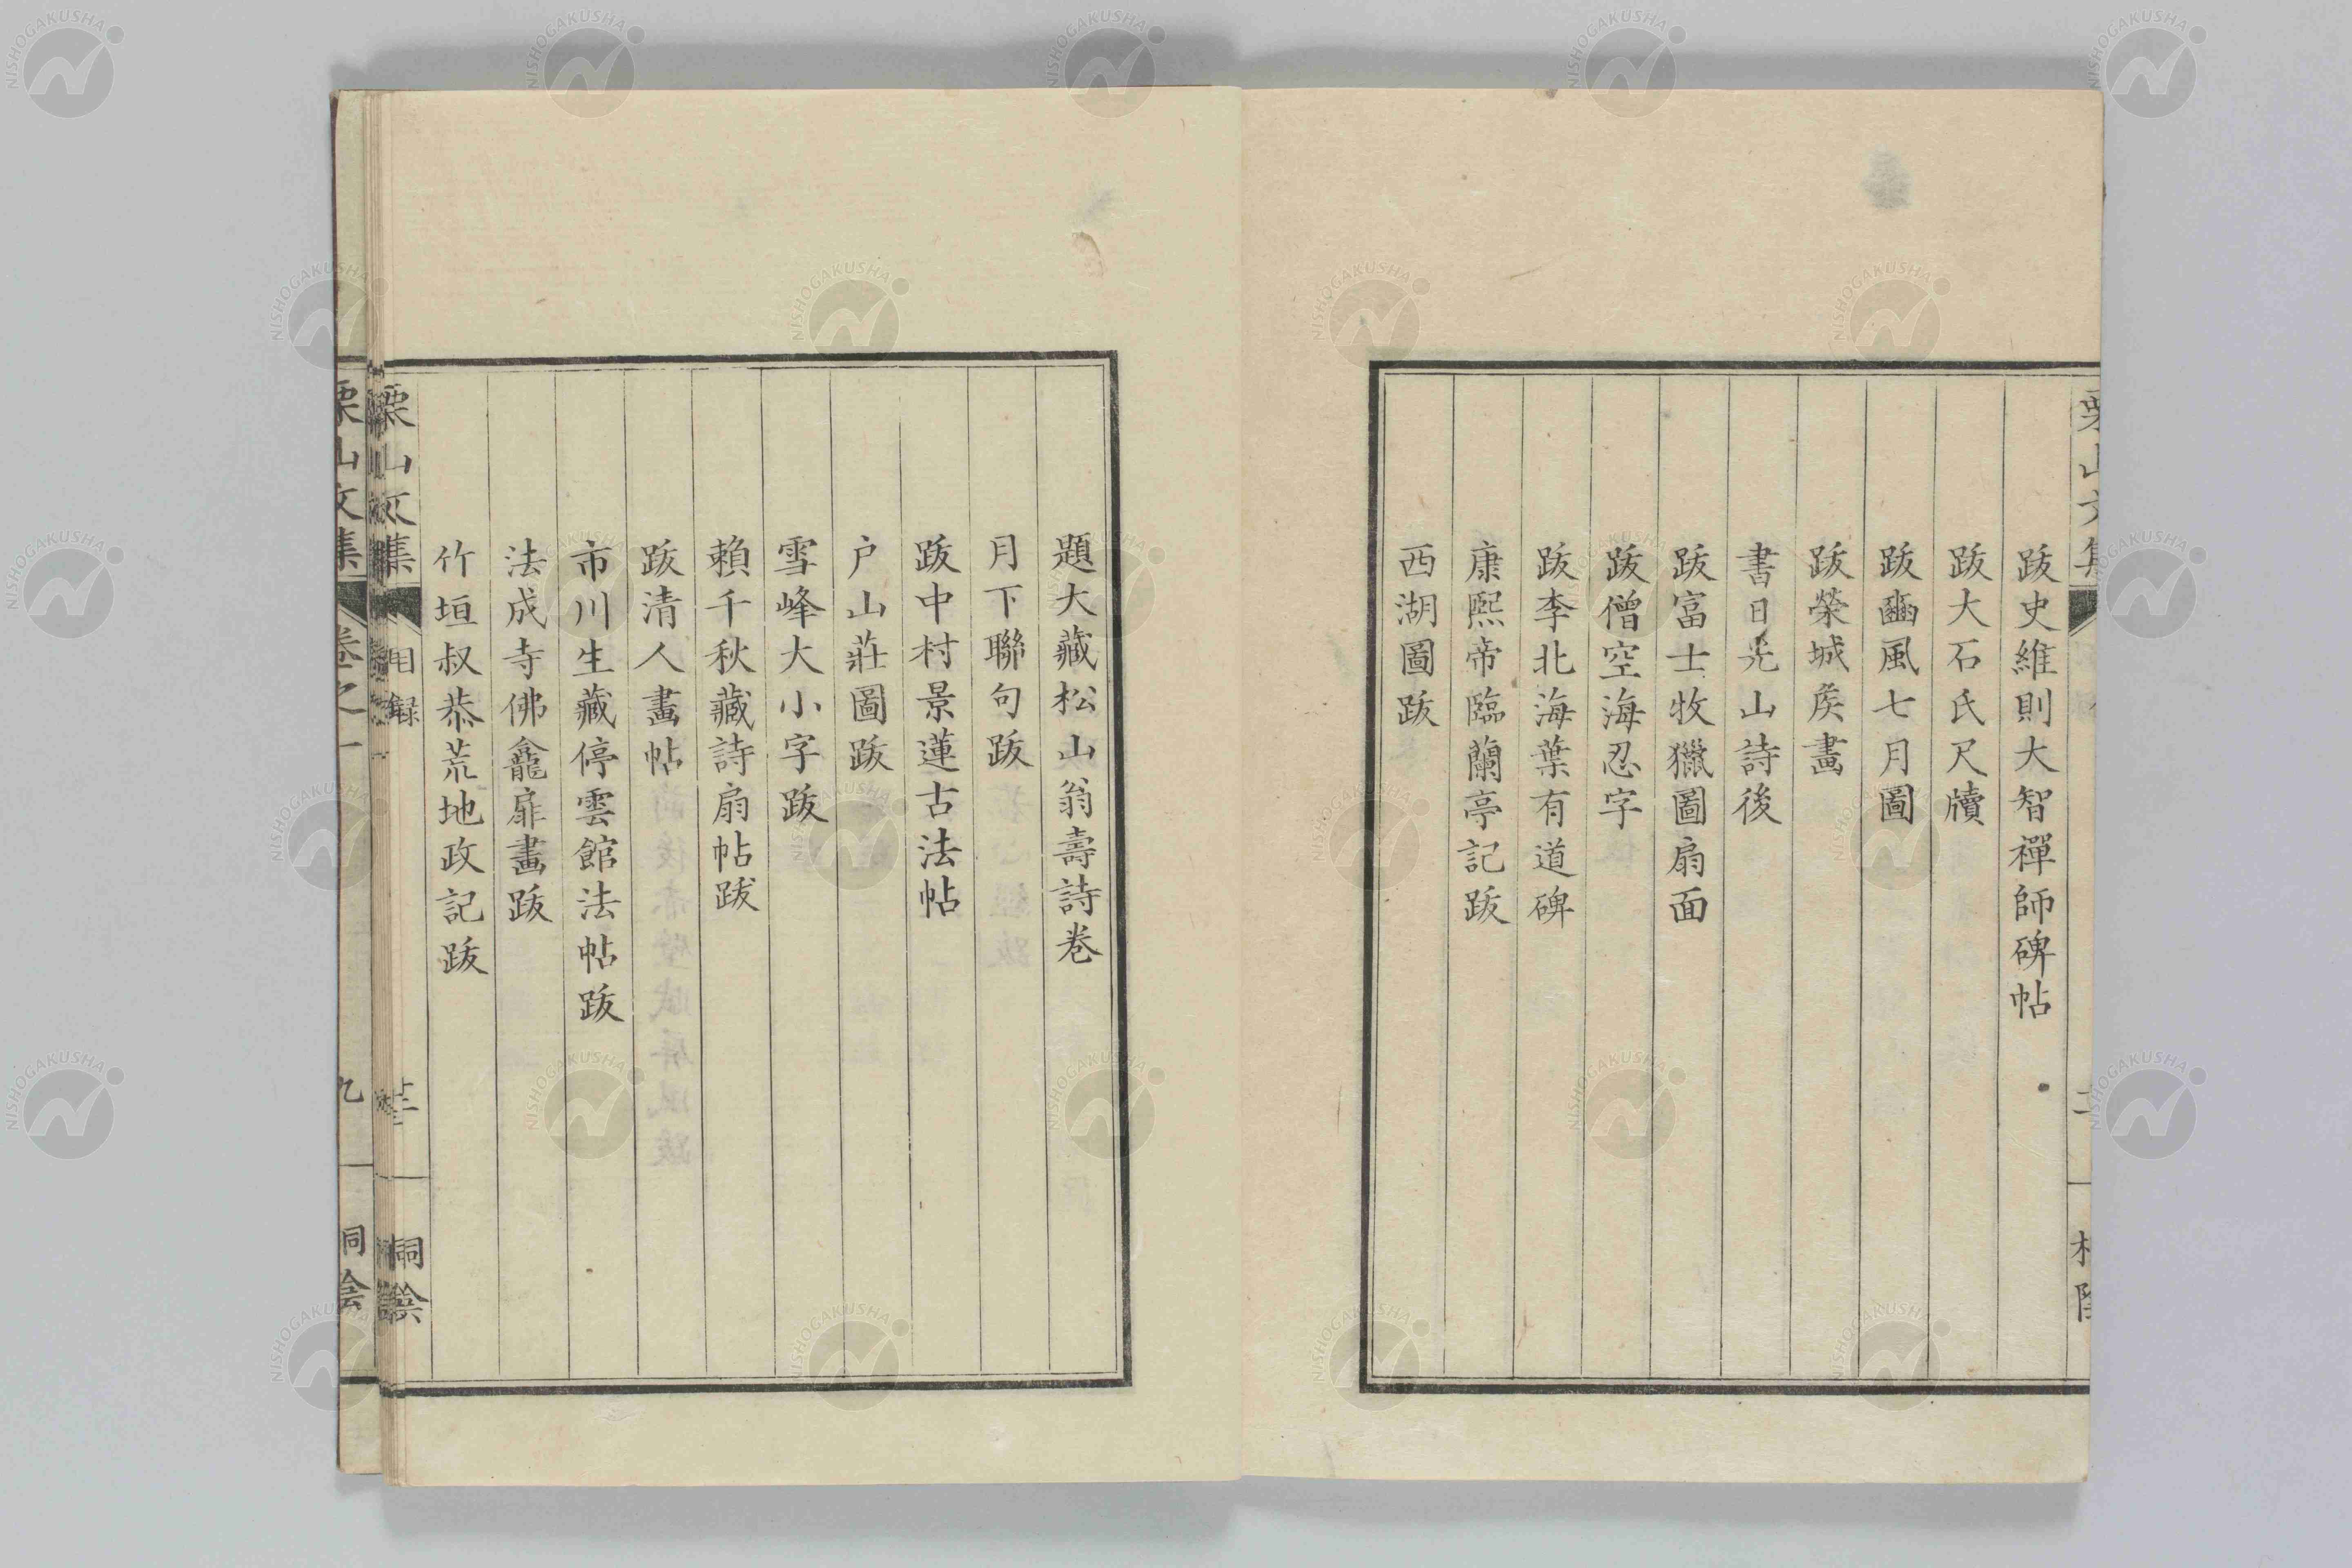 跋史維則大智禪師碑帖
跋大石氏尺牘
跋豳風七月圖
跋榮城矦畫
書日光山詩後
跋富士牧獵圖扇面
跋僧空海忍字
跋李北海葉有道碑
康熙帝臨蘭亭記跋
西湖圖跋
題大藏松山翁壽詩卷
月下聯句跋
跋中村景蓮古法帖
户山莊圖跋
雪峰大小字跋
賴千秋藏詩扇帖跋
跋清人畫帖
市川生藏停雲館法帖跋
法成寺佛龕扉畫跋
竹垣叔恭荒地政記跋
栗山文集 目録
栗山文集 卷之一 九 桐陰
NISHOGAKUSHA